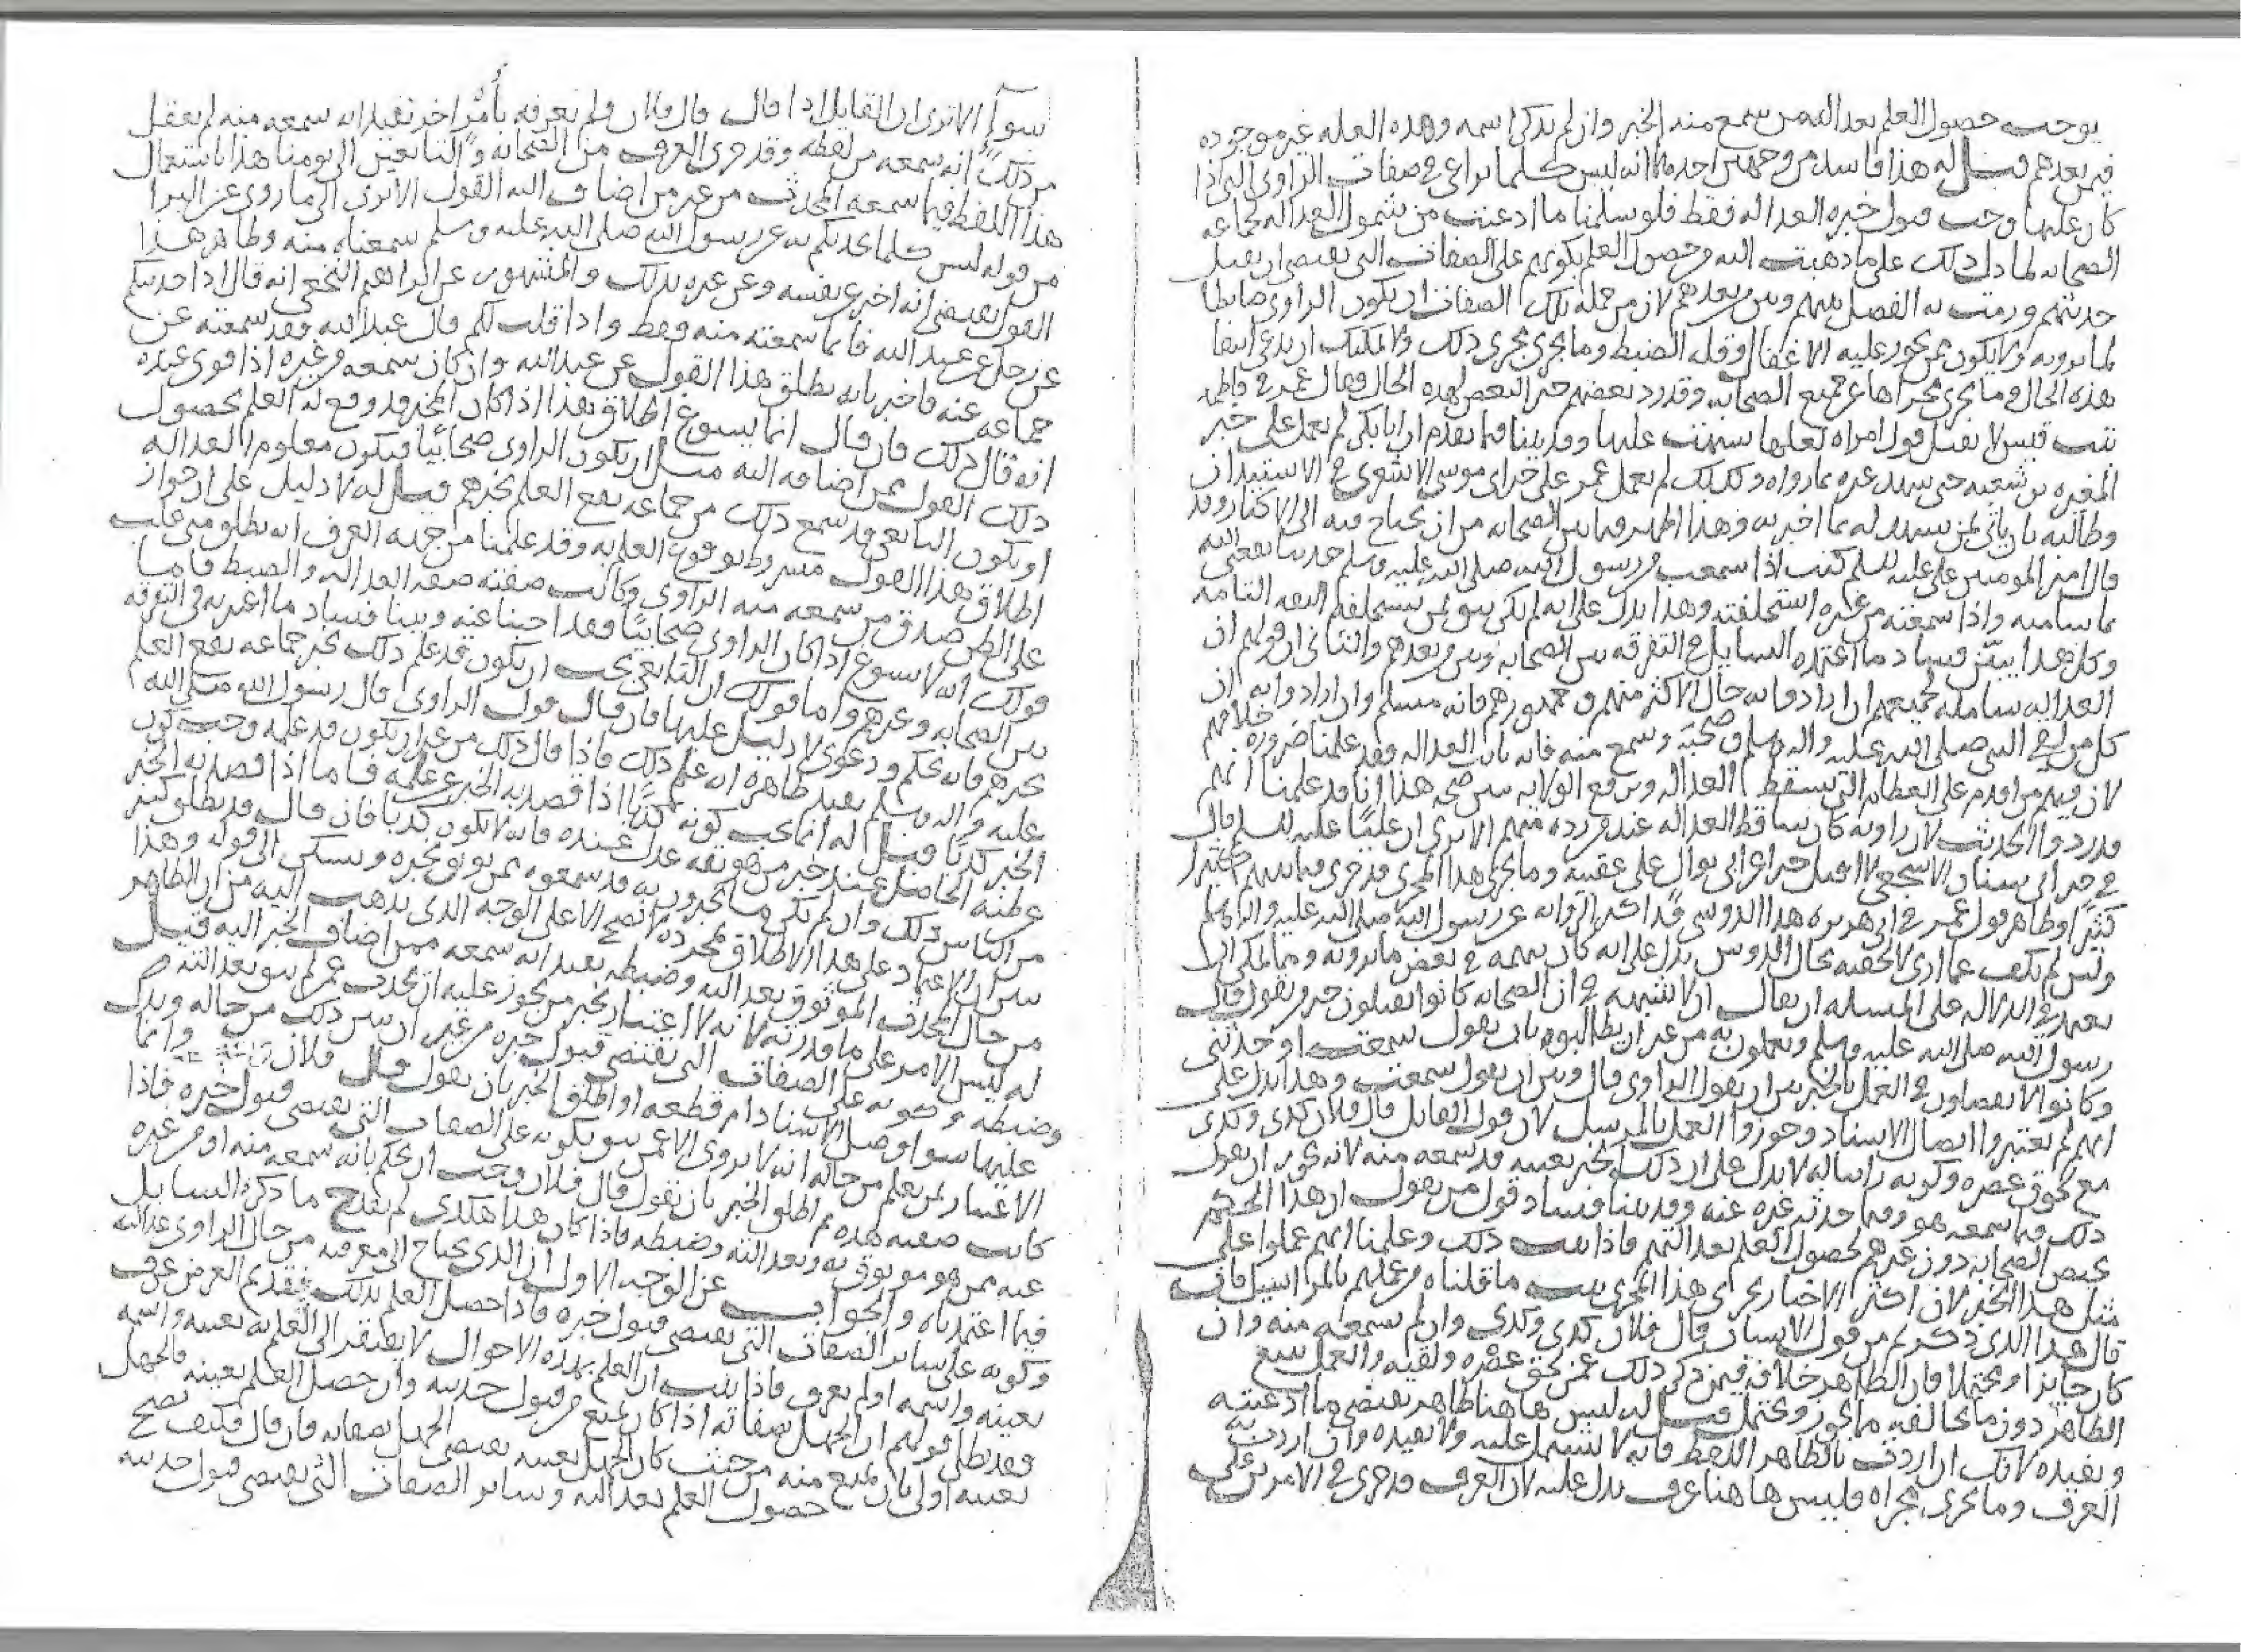 يوجب حصول العلم بعدالة من سمع منه الخبر وان لم يذكر اسمه وهذه العلة غير موجودة
فيمن بعدهم قيل له هذا فاسد من وجهين احدهما انه ليس كلما يراعى في صفات الراوي التي اذا
كان عليها وجب قبول خبره العدالة فقط فلو سلمنا ما ادعيت من شمول العدالة لجماعة
الصحابة لما دل ذلك على ما ذهبت اليه وحصول العلم بكونهم على الصفات التي يقتضي ان يقبل
حديثهم ورمت به الفصل بينهم وبين من بعدهم لان من جملة تلك الصفات ان يكون الراوي ضابطا
لما يرويه ولا يكون ممن يجوز عليه الاغفال وقلة الضبط وما يجري مجرى ذلك ولا يمكنك ان تدعي انتفا
هذه الحال وما يجري مجراها عن جميع الصحابة وقد رد بعضهم خبر البعض لهذه الحال وقال عمر في فاطمة
بنت قيس لا نقبل قول امراة لعلها شبهت عليها وقد بينا فيما تقدم ان ابا بكر لم يعمل على خبر
المغيرة بن شعبة حتى شهد غيره بما رواه وكذلك لم يعمل عمر على خبر ابي موسى الاشعري في الاستيذان
وطالبه بان ياتي بمن يشهد له بما اخبر به وهذا اظهر فيما بين الصحابة من ان يحتاج فيه الى الاكثار وقد
قال امير المومنين علي عليه السلم كنت اذا سمعت من رسول الله صلى الله عليه وسلم حديثا نفعني الله
بما شا منه واذا سمعته من غيره استحلفته وهذا يدل على انه لم يكن يثق بمن يستحلفهم الثقة التامة
وكل هذا يبين فساد ما اعتمده السايل في التفرقة بين الصحابة وبين من بعدهم والثاني ان قولهم ان
العدالة شاملة لجميعهم ان اراد وا به حال الاكثر منهم وجمهورهم فانه مسلم وان ارادوا به ان
كل من لقي النبي صلى الله عليه واله وسلم وصحبه وسمع منه فانه ثابت العدالة فقد علمنا ضرورة خلافهم
لان فيهم من اقدم على العظائم التي تسقط العدالة وترفع الولاية يبين صحة هذا انا قد علمنا انهم
قد ردوا الحديث لان راويه كان ساقط العدالة عند من رده منهم الا ترى ان عليا عليه السلم قال
في خبر ابي سنان الاشجعي لا اقبل خبر اعرابي بوال على عقبيه وما يجري هذا المجرى قد جرى فيما بينهم كثيرا
كثيرا وظاهر قول عمر في ابي هريرة هذا الدوسي قد اكثر الرواية عن رسول الله صلى الله عليه واله وسلم
ولئن لم يكف عما ارى لالحقنه بجبال الدوس يدل على انه كان يتهمه في بعض ما يرويه ومما يمكن ان
يعتمد في الدلالة على المسلة ان يقال ان لا شبهة في ان الصحابة كانوا يقبلون خبر من يقول قال
رسول الله صلى الله عليه وسلم ويعملون به من غير ان يطالبوه بان يقول سمعت او حدثني
وكانوا لا يفصلون في العمل بالخبر بين ان يقول الراوي قال وبين ان يقول سمعت وهذا يدل على
انهم لم يعتبروا ايصال الاسناد وجوزوا العمل بالمرسل لان قول القايل قال فلان كذى وكذى
مع لحوق عصره وكونه راسا له لا يدل على ان ذلك المخبر بعينه قد سمعه منه لانه يجوز ان يقول
ذلك فيما سمعه هو وفيما حدثه غيره عنه وقد بينا فساد قول من يقول ان هذا الحكم
يختص الصحابة دون غيرهم لحصول العلم بعدالتهم فاذا ثبت ذلك وعلمنا انهم عملوا على
مثل هذا الخبر لان اكثر الاخبار يجري هذا المجرى ثبت ما قلناه من عملهم بالمراسيل فان
قال هذا الذي ذكرتم من قول الانسان قال فلان كذى وكذى وان لم يسمعه منه وان
كان جايزا ومحتملا فان الظاهر خلافه فيمن ذكر ذلك عمن لحق عصره ولقيه والعمل يتبع
الظاهر دون ما يخالفه مما يجوز ويحتمل قيل له ليس ها هنا ظاهر يقتضي ما ادعيته
ويفيده لانك ان اردت بالظاهر اللفظ فانه لا يشتمل عليه ولا يفيده وان اردت
العرف وما يجري مجراه فليس ها هنا عرف يدل عليه لان العرف قد جرى في الامرين على
سوآء الا ترى ان القايل اذا قال قال فلان ولم يعرفه بأمر اخر يفيد انه سمعه منه لم يعقل
من ذلك انه سمعه من لفظه وقد جرى العرف من الصحابة والتابعين الى يومنا هذا باستعمال
هذا اللفظ فيما سمعه المحدث من غير من اضاف اليه القول الا ترى الى ما روي عن البرا
من قوله ليس كلما نحدثكم به عن رسول الله صلى الله عليه وسلم سمعناه منه وظاهر هذا
القول يقتضي انه اخبر عن نفسه وعن غيره بذلك والمشهور عن ابراهيم النخعي انه قال اذا حدثتكم
عن رجل عن عبد الله فانما سمعته منه فقط واذا قلت لكم قال عبد الله فقد سمعته عن
جماعة عنه فاخبر بانه يطلق هذا القول عن عبد الله وان كان سمعه من غيره اذا قوي عنده
انه قال ذلك فان قال انما يسوغ اطلاق هذا اذا كان المخبر قد وقع له العلم بحصول
ذلك القول ممن اضافه اليه مثل ان يكون الراوي صحابيا فيكون معلوم العدالة
او يكون التابعي قد سمع ذلك من جماعة يقع العلم بخبرهم قيل له لا دليل على ان جواز
اطلاق هذا القول مشروط بوقوع العلم به وقد علمنا من جهة العرف انه يطلق متى غلب
على الظن صدق من سمعه منه الراوي وكانت صفته صفة العدالة والضبط فاما
قولك انه لا يسوغ اذا كان الراوي صحابيا فقد اجبنا عنه وبينا فساد ما اعتمد به في التفرقة
بين الصحابة وغيرهم واما قولك ان التابعي يجب ان يكون قد علم ذلك بخبر جماعة يقع العلم
بخبرهم فانه تحكم ودعوى لا دليل عليها فان قال قول الراوي قال رسول الله صلى الله
عليه واله وسلم يفيد ظاهره انه علم ذلك فاذا قال ذلك من غير ان يكون قد علمه وجب كون
الخبر كذبا قيل له انما يجب كونه كذبا اذا قصد به الخبر عن علمه فاما اذا قصد به الخبر
عن ظنه الحاصل عند خبر من هو ثقة عدل عنده فانه لا يكون كذبا فان قال قد يطلق كثير
من الناس ذلك وان لم يكن ما يخبرون به قد سمعوه ممن يوثق بخبره ويسكن الى قوله وهذا
يبين ان الاعتماد على هذا الاطلاق بمجرده لا يصح الا على الوجه الذي يذهب اليه من ان الظاهر
من حال المحدث الموثوق بعدالته وضبطه يفيد انه سمعه ممن اضاف الخبر اليه قيل
له ليس الامر على ما قدرته لانه لا اعتبار بخبر من يجوز عليه ان يحدث عمن لم يثق بعدالته
وضبطه وكونه على الصفات التي يقتضي قبول خبره من غير ان يبين ذلك من حاله
عليها سوا وصل الاسناد ام قطعه او اطلق الخبر بان يقول قال فلان وانما
الاعتبار بمن يعلم من حاله انه لا يروي الا عمن يثق بكونه على الصفات التي يقتضي قبول خبره فاذا
كانت صفته هذه ثم اطلق الخبر بان يقول قال فلان وجب ان يحكم بانه سمعه منه او من غيره
عنه ممن هو موثوق به وبعدالته وضبطه فاذا كان هذا هكذى لم يقدح ما ذكره السايل
فيما اعتمدناه والجواب عن الوجه الاول ان الذي يحتاج الى معرفته من حال الراوي عدالته
وكونه على ساير الصفات التي يقتضي قبول خبره فاذا حصل العلم بذلك فقد تم الغرض عرف
بعينه واسمه او لم يعرف فاذا ثبت ان العلم بهذه الاحوال لا يفتقر الى العلم بعينه واسمه
فقد بطل قولهم ان الجهل بصفاته اذا كان يمنع من قبول حديثه وان حصل العلم بعينه فالجهل
بعينه اولى بان يمنع منه من حيث كان الجهل بعينه يقتضي الجهل بصفاته فان قال فكيف يصح
حصول العلم بعدالته وساير الصفات التي يقتضي قبول حديثه